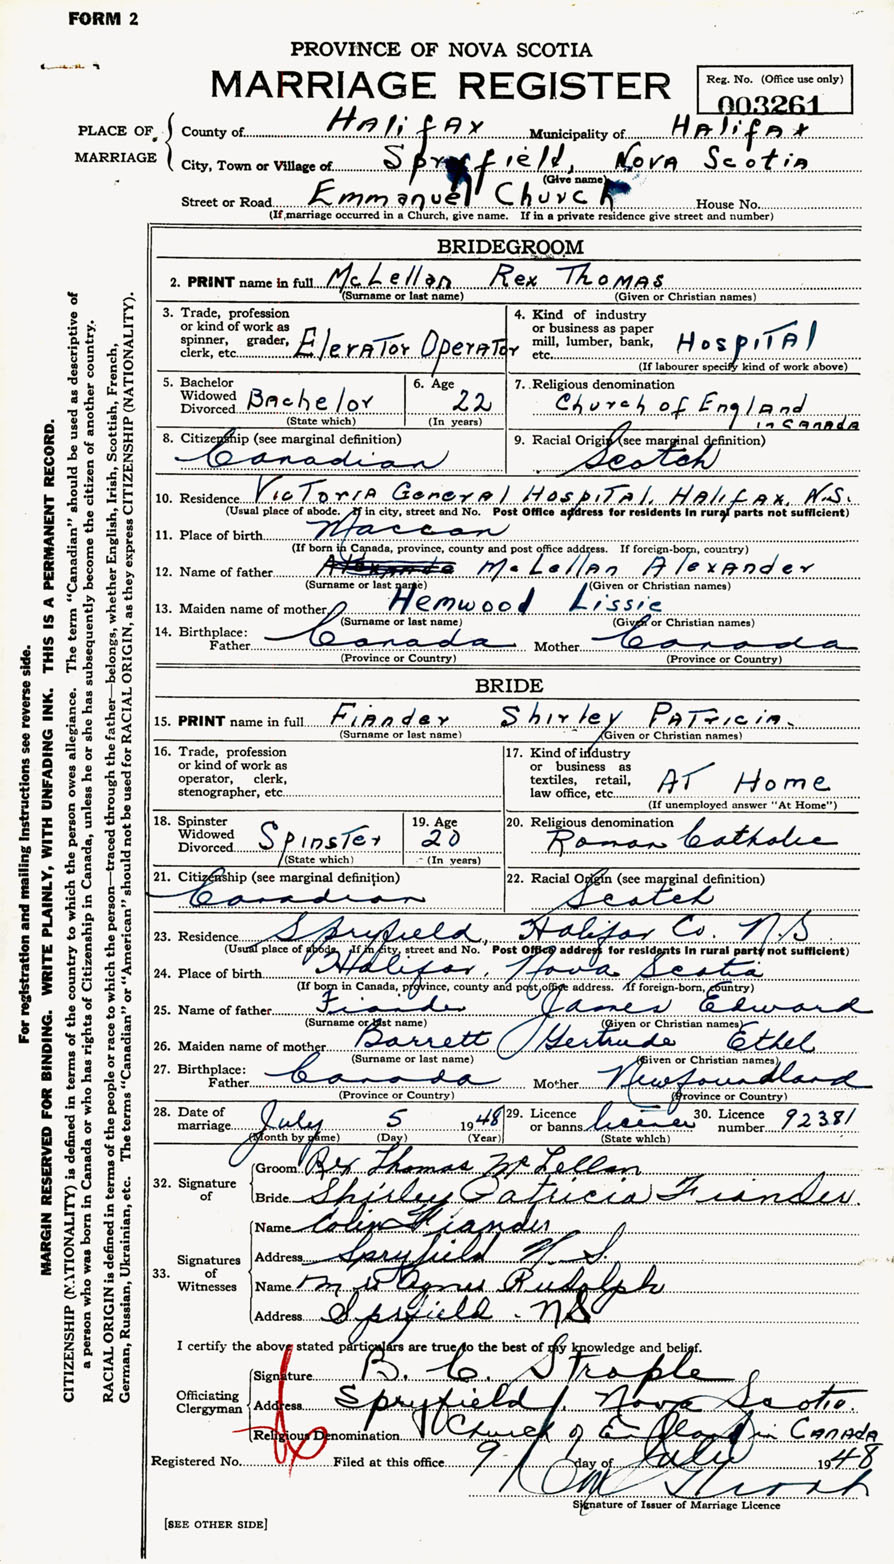 FORM 2
PROVINCE OF NOVA SCOTIA
MARRIAGE REGISTER
Reg. No. (Office use only)
003261
PLACE OF MARRIAGE
County of Halifax Municipality of Halifax
City, Town or Village of Spryfield, Nova Scotia
(Give name)
Street or Road Emmanuel Church House No.
(If marriage occurred in a Church, give name. If in a private residence give street and number)
BRIDEGROOM
2. PRINT name in full McLellan Rex Thomas
(Surname or last name) (Given or Christian names)
3. Trade, profession or kind of work as spinner, grader, clerk, etc. Elevator Operator
4. Kind of industry or business as paper mill, lumber, bank, etc. Hospital
(If labourer specify kind of work above)
5. Bachelor Widowed Divorced Bachelor
(State which)
6. Age 22
(In years)
7. Religious denomination
Church of England in Canada
8. Citizenship (see marginal definition)
Canadian
9. Racial Origin (see marginal definition)
Scotch
10. Residence Victoria General Hospital, Halifax, N.S.
(Usual place of abode. If in city, street and No. Post Office address for residents in rural parts not sufficient)
11. Place of birth Maccan
(If born in Canada, province, county and post office address. If foreign-born, country)
12. Name of father McLellan Alexander
(Surname or last name) (Given or Christian names)
13. Maiden name of mother Hemwood Lissie
(Surname or last name) (Given or Christian names)
14. Birthplace: Father Canada Mother Canada
(Province or Country) (Province or Country)
BRIDE
15. PRINT name in full Fiander Shirley Patricia.
(Surname or last name) (Given or Christian names)
16. Trade, profession or kind of work as operator, clerk, stenographer, etc.
17. Kind of industry or business as textiles, retail, law office, etc. At Home
(If unemployed answer "At Home")
18. Spinster Widowed Divorced Spinster
(State which)
19. Age 20
(In years)
20. Religious denomination
Roman Catholic
21. Citizenship (see marginal definition)
Canadian
22. Racial Origin (see marginal definition)
Scotch
23. Residence Spryfield, Halifax Co. N.S
(Usual place of abode. If in city, street and No. Post Office address for residents in rural parts not sufficient)
24. Place of birth Halifax, Nova Scotia
(If born in Canada, province, county and post office address. If foreign-born, country)
25. Name of father Fiander James Edward
(Surname or last name) (Given or Christian names)
26. Maiden name of mother Barrett Gertrude Ethel
(Surname or last name) (Given or Christian names)
27. Birthplace: Father Canada Mother Newfoundland
(Province or Country) (Province or Country)
28. Date of marriage July 5 1948
(Month by name) (Day) (Year)
29. Licence or banns licence
(State which)
30. Licence number 92381
32. Signature of
Groom Rex Thomas McLellan
Bride Shirley Patricia Fiander
33. Signatures of Witnesses
Name Colin Fiander
Address Spryfield N.S.
Name Mrs Agnes Rudolph
Address Spryfield - NS
I certify the above stated particulars are true to the best of my knowledge and belief.
Officiating Clergyman
Signature B. C. Strople
Address Spryfield, Nova Scotia.
Religious Denomination Church of England in Canada
Registered No. Filed at this office 9 day of July 1948
Signature of Issuer of Marriage Licence
[SEE OTHER SIDE]
For registration and mailing instructions see reverse side.
MARGIN RESERVED FOR BINDING. WRITE PLAINLY, WITH UNFADING INK. THIS IS A PERMANENT RECORD.
CITIZENSHIP (NATIONALITY) is defined in terms of the country to which the person owes allegiance. The term "Canadian" should be used as descriptive of
a person who was born in Canada or who has rights of Citizenship in Canada, unless he or she has subsequently become the citizen of another country.
RACIAL ORIGIN is defined in terms of the people or race to which the person—traced through the father—belongs, whether English, Irish, Scottish, French,
German, Russian, Ukrainian, etc. The terms "Canadian" or "American" should not be used for RACIAL ORIGIN, as they express CITIZENSHIP (NATIONALITY).